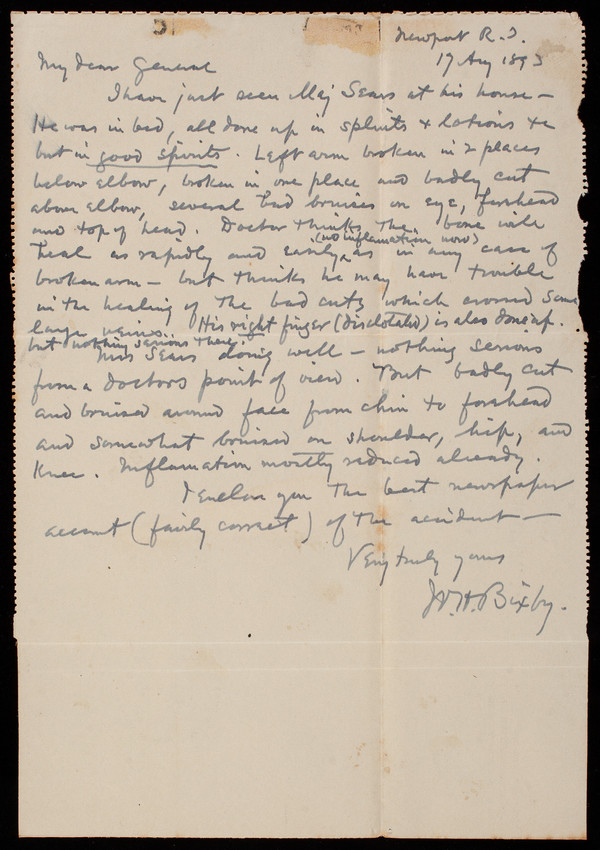 Newport R.I.
17 Aug 1893
My dear General
I have just seen Maj Sears at his house —
He was in bed, all done up in splints & lotions &c
but in good spirits. Left arm broken in 2 places
below elbow, broken in one place and badly cut
above elbow, several bad bruises on eye, forehead
and top of head. Doctor thinks the bone will
(no inflammation now)
heal as rapidly and easily as in any case of
broken arm — but thinks he may have trouble
in the healing of the bad cuts which crossed some
large veins. His right finger (dislocated) is also done up.
but nothing serious there.
Mrs Sears doing well — nothing serious
from a doctors point of view. But badly cut
and bruised around face from chin to forehead
and somewhat bruised on shoulder, hip, and
knee. Inflamation mostly reduced already.
I enclose you the best newspaper
account (fairly correct) of the accident —
Very truly yours
W.H. Bixby.